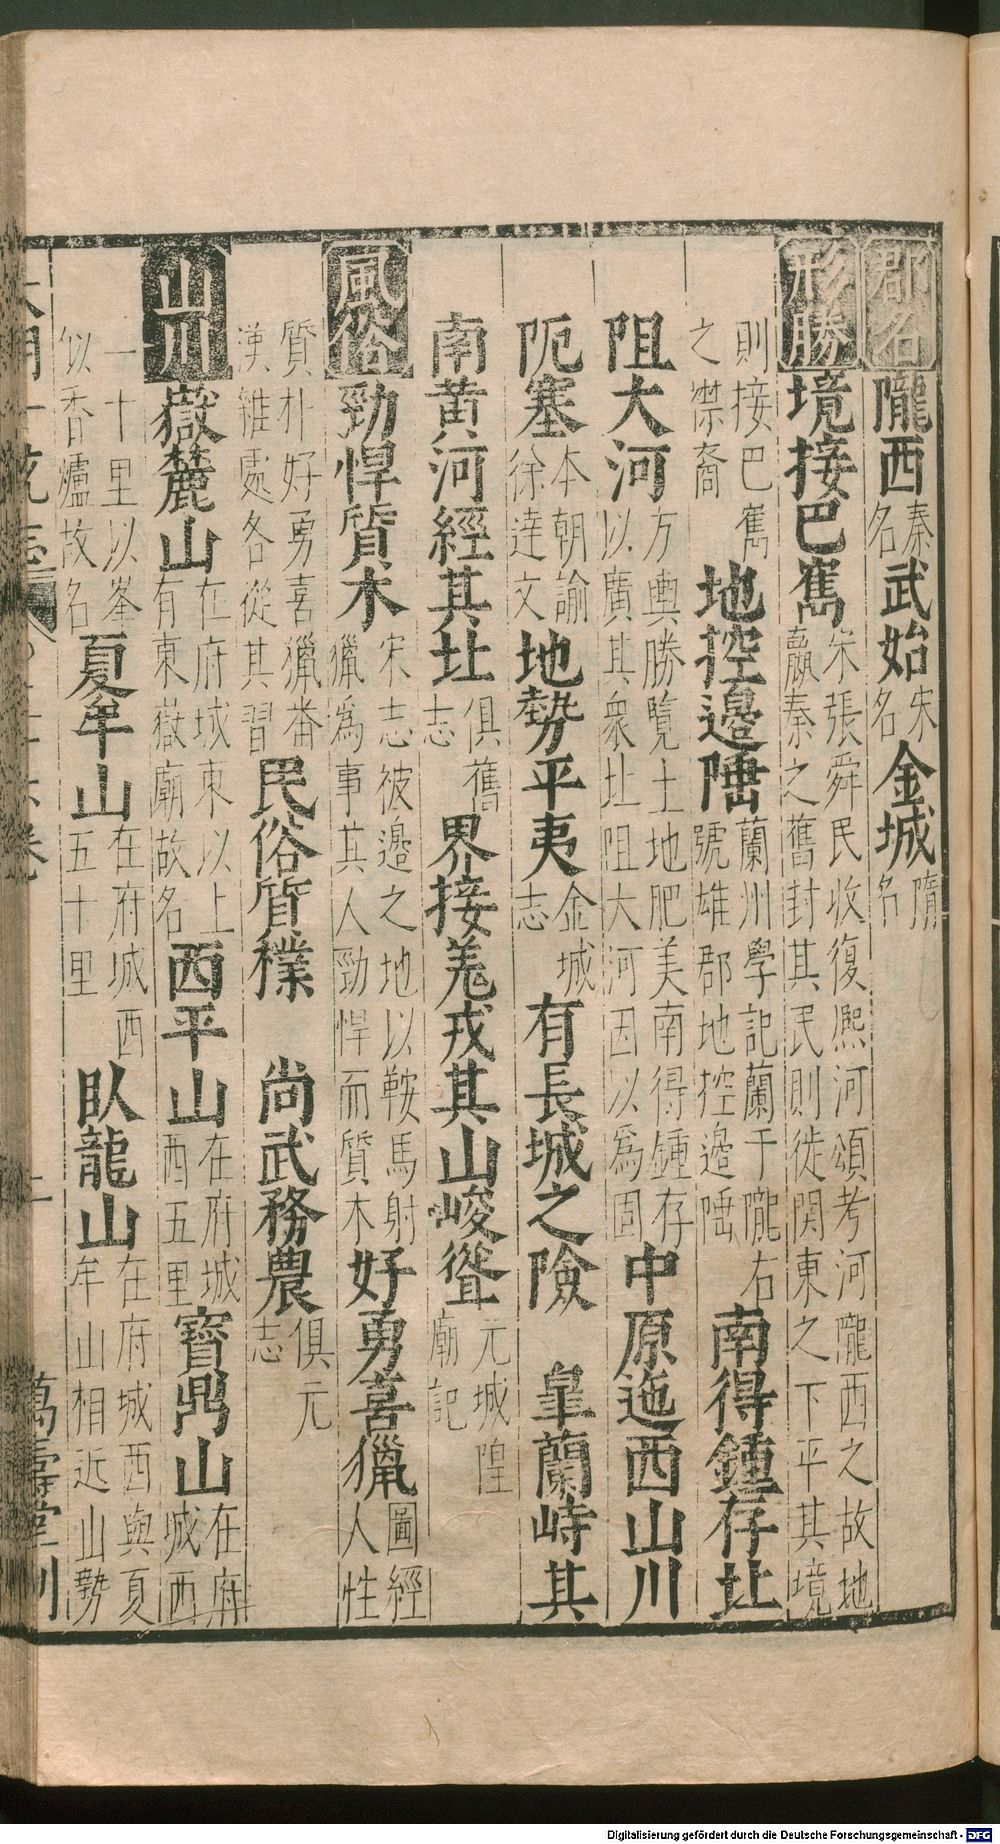 郡名 隴西 秦名 武始 宋名 金城 隋名
形勝 境接巴雋 宋張舜民收復熙河頌考河隴西之故地嬴秦之舊封其民則徙関東之下平其境
則接巴雋之禁裔 地控邉陲 蘭州學記蘭于隴右號雄郡地控邉陲 南得鍾存址
阻大河 方輿勝覧土地肥美南得鍾存以廣其衆址阻大河因以為固 中原迤西山川
阨塞 本朝諭徐達文 地勢平夷 金城志 有長城之險 臯蘭峙其
南黄河經其址 俱舊志 界接羗戎其山峻聳 元城隍廟記
風俗 勁悍質木 宋志彼邉之地以鞍馬射獵為事其人勁悍而質木 好勇喜獵 圖經人性
質朴好勇喜獵畨漢雜處各從其習 民俗質樸 尚武務農 俱元志
山川 嶽麓山 在府城東以上有東嶽廟故名 西平山 在府城西五里 寳鼎山 在府城西
一十里以峯似香爐故名 夏牟山 在府城西五十里 臥龍山 在府城西與夏牟山相近山勢
大明一統志 卷 萬壽堂刊
Digitalisierung gefördert durch die Deutsche Forschungsgemeinschaft - DFG